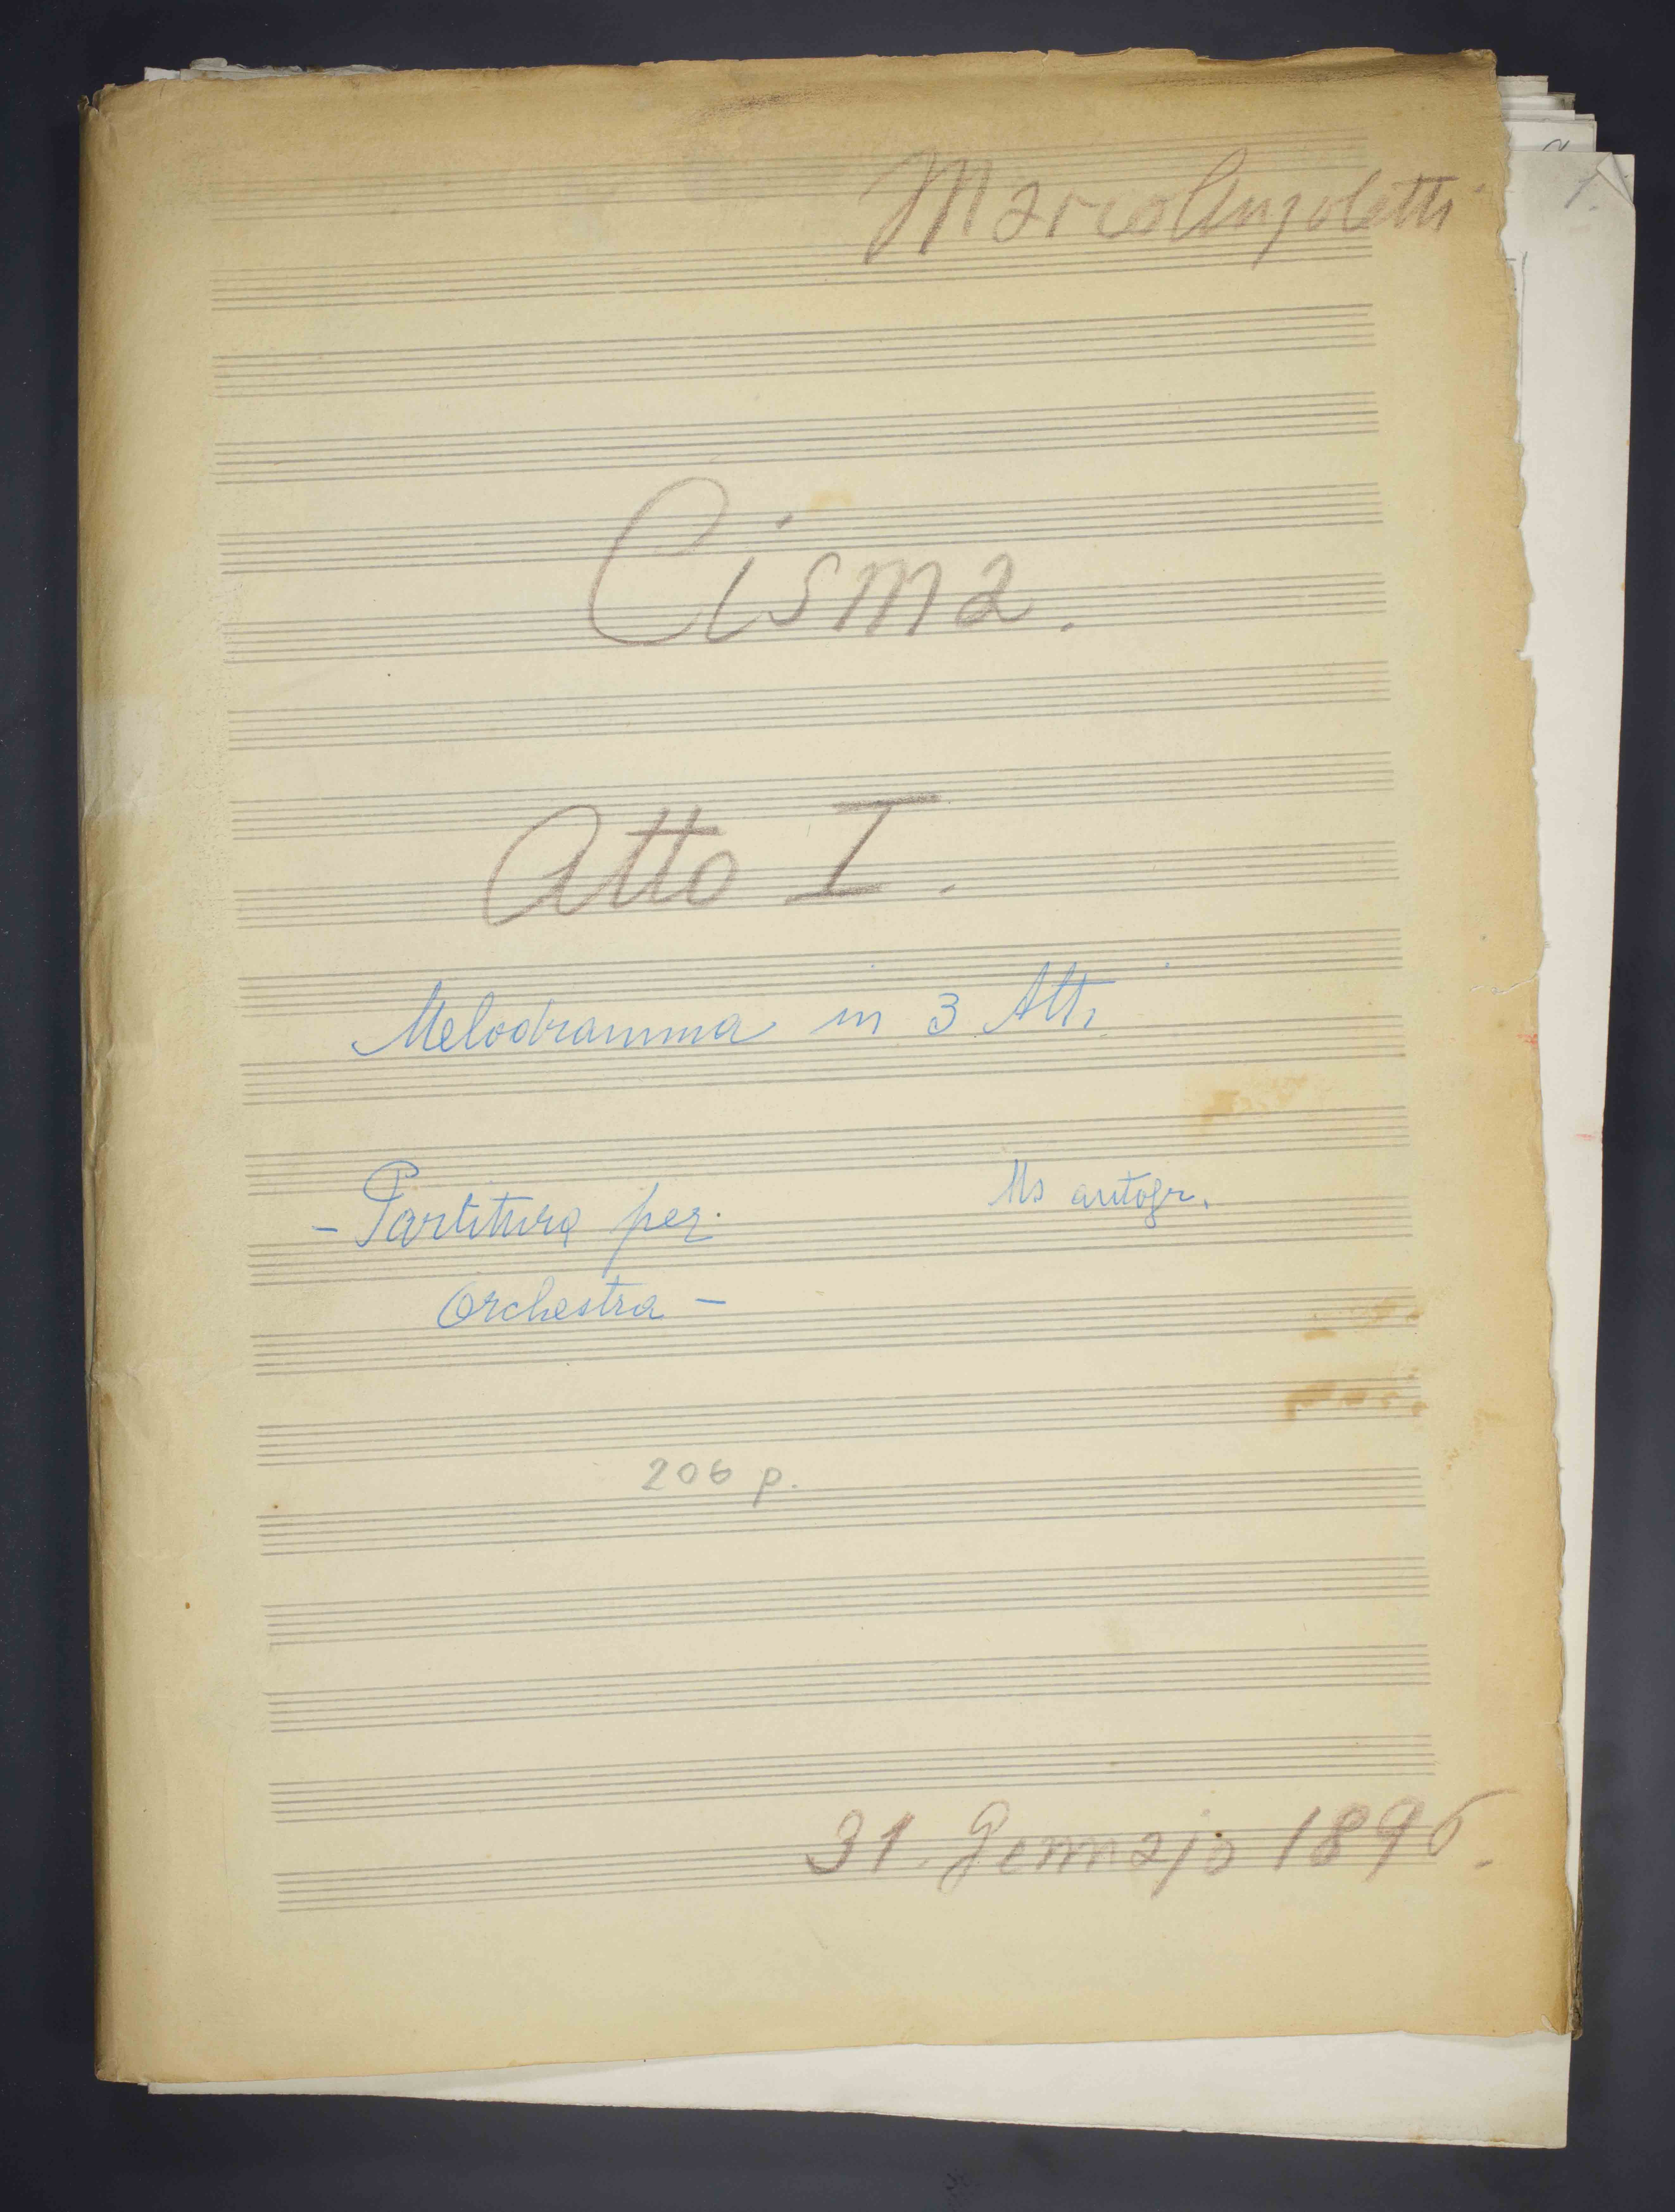 Marco Anzoletti
1.
Cisma.
Atto I.
Melodramma in 3 Atti
- Partitura per
Ms autogr.
Orchestra -
206 p.
31. Gennajo 1896.